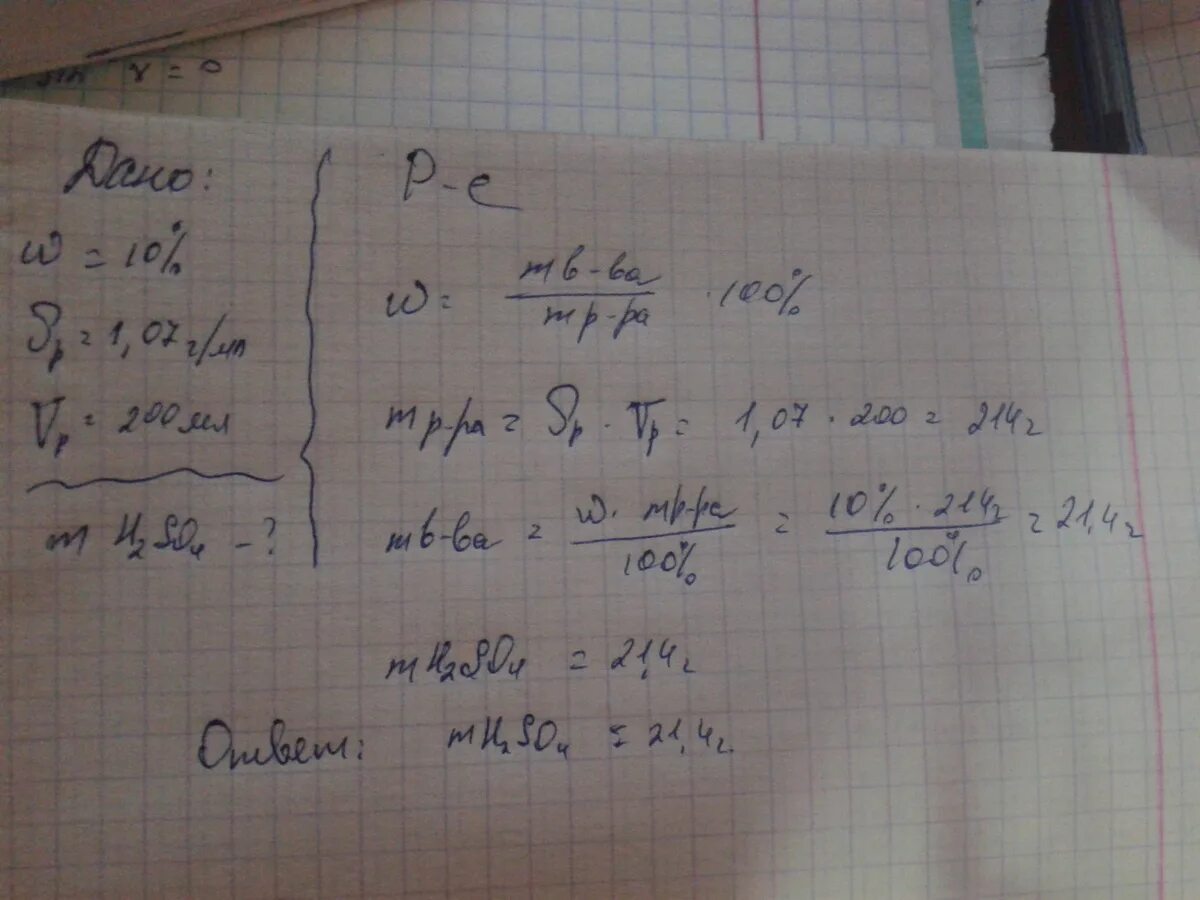 γ = 0
Дано:
ω = 10%
ρр = 1,07 г/мл
Vр = 200 мл
m H₂SO₄ - ?
Р-е
ω = m в-ва / m р-ра · 100%
m р-ра = ρр · Vр = 1,07 · 200 = 214 г
m в-ва = ω · m р-ра / 100% = 10% · 214 г / 100% = 21,4 г
m H₂SO₄ = 21,4 г
Ответ: m H₂SO₄ = 21,4 г.